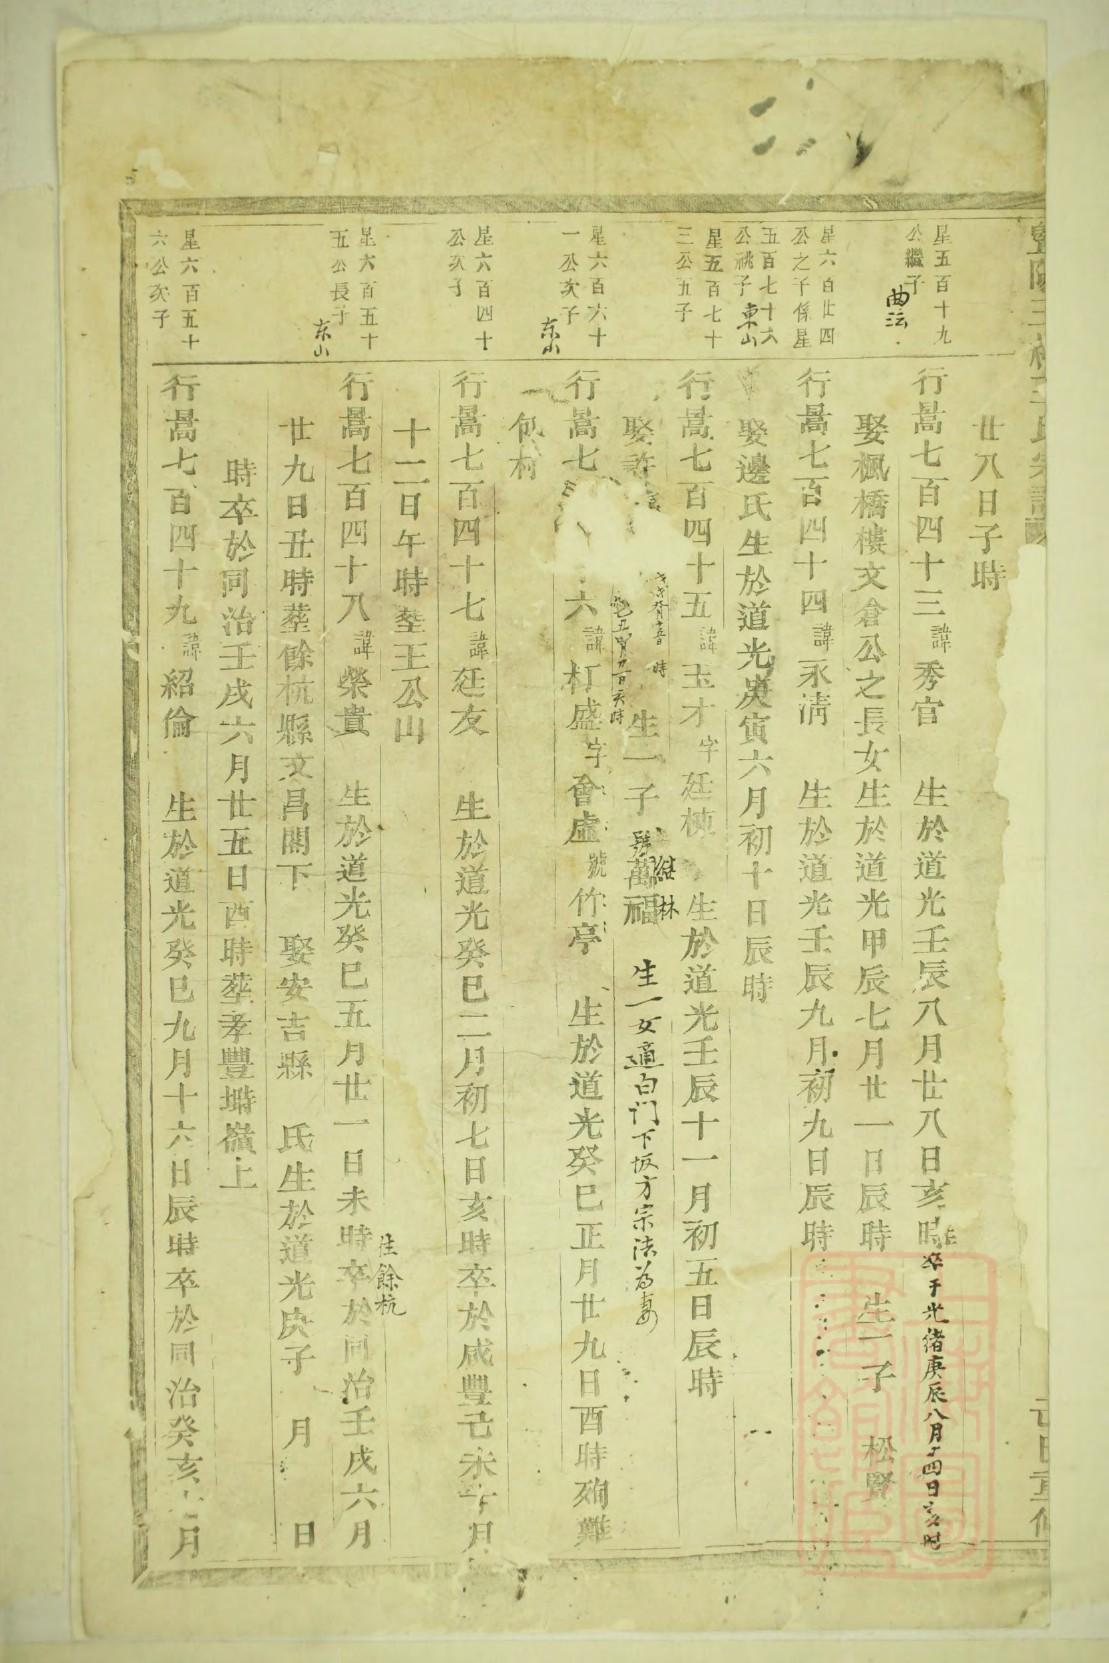 廿八日子時
星五百十九
公繼子
曲沄
行暠七百四十三諱秀官 生於道光壬辰八月廿八日亥時卒于光緒庚辰八月十四日亥時
娶楓橋樓文倉公之長女生於道光甲辰七月廿一日辰時 生一子 松賢
星六百廿四
公之子係星
五百七十六
公祧子
東山
行暠七百四十四諱永淸 生於道光壬辰九月初九日辰時
娶邊氏生於道光庚寅六月初十日辰時
星五百七十
三公五子
行暠七百四十五諱玉才字廷楨 生於道光壬辰十一月初五日辰時
娶許 時 生一子 萬福 繼林 生一女適白门下坂方宗法为妻
星六百六十
一公次子
东山
行暠七 六諱杠盛字會虛號竹亭 生於道光癸巳正月廿九日酉時殉難
包村
星六百四十
公次子
行暠七百四十七諱廷友 生於道光癸巳二月初七日亥時卒於咸豐己未 月
十二日午時塟王公山
星六百五十
五公長子
东山
行暠七百四十八諱榮貴 生於道光癸巳五月廿一日未時卒於同治壬戌六月
住餘杭
廿九日丑時塟餘杭縣文昌閣下 娶安吉縣 氏生於道光庚子 月 日
時卒於同治壬戌六月廿五日酉時塟孝豐塒嶺上
星六百五十
六公次子
行暠七百四十九諱紹倫 生於道光癸巳九月十六日辰時卒於同治癸亥 月